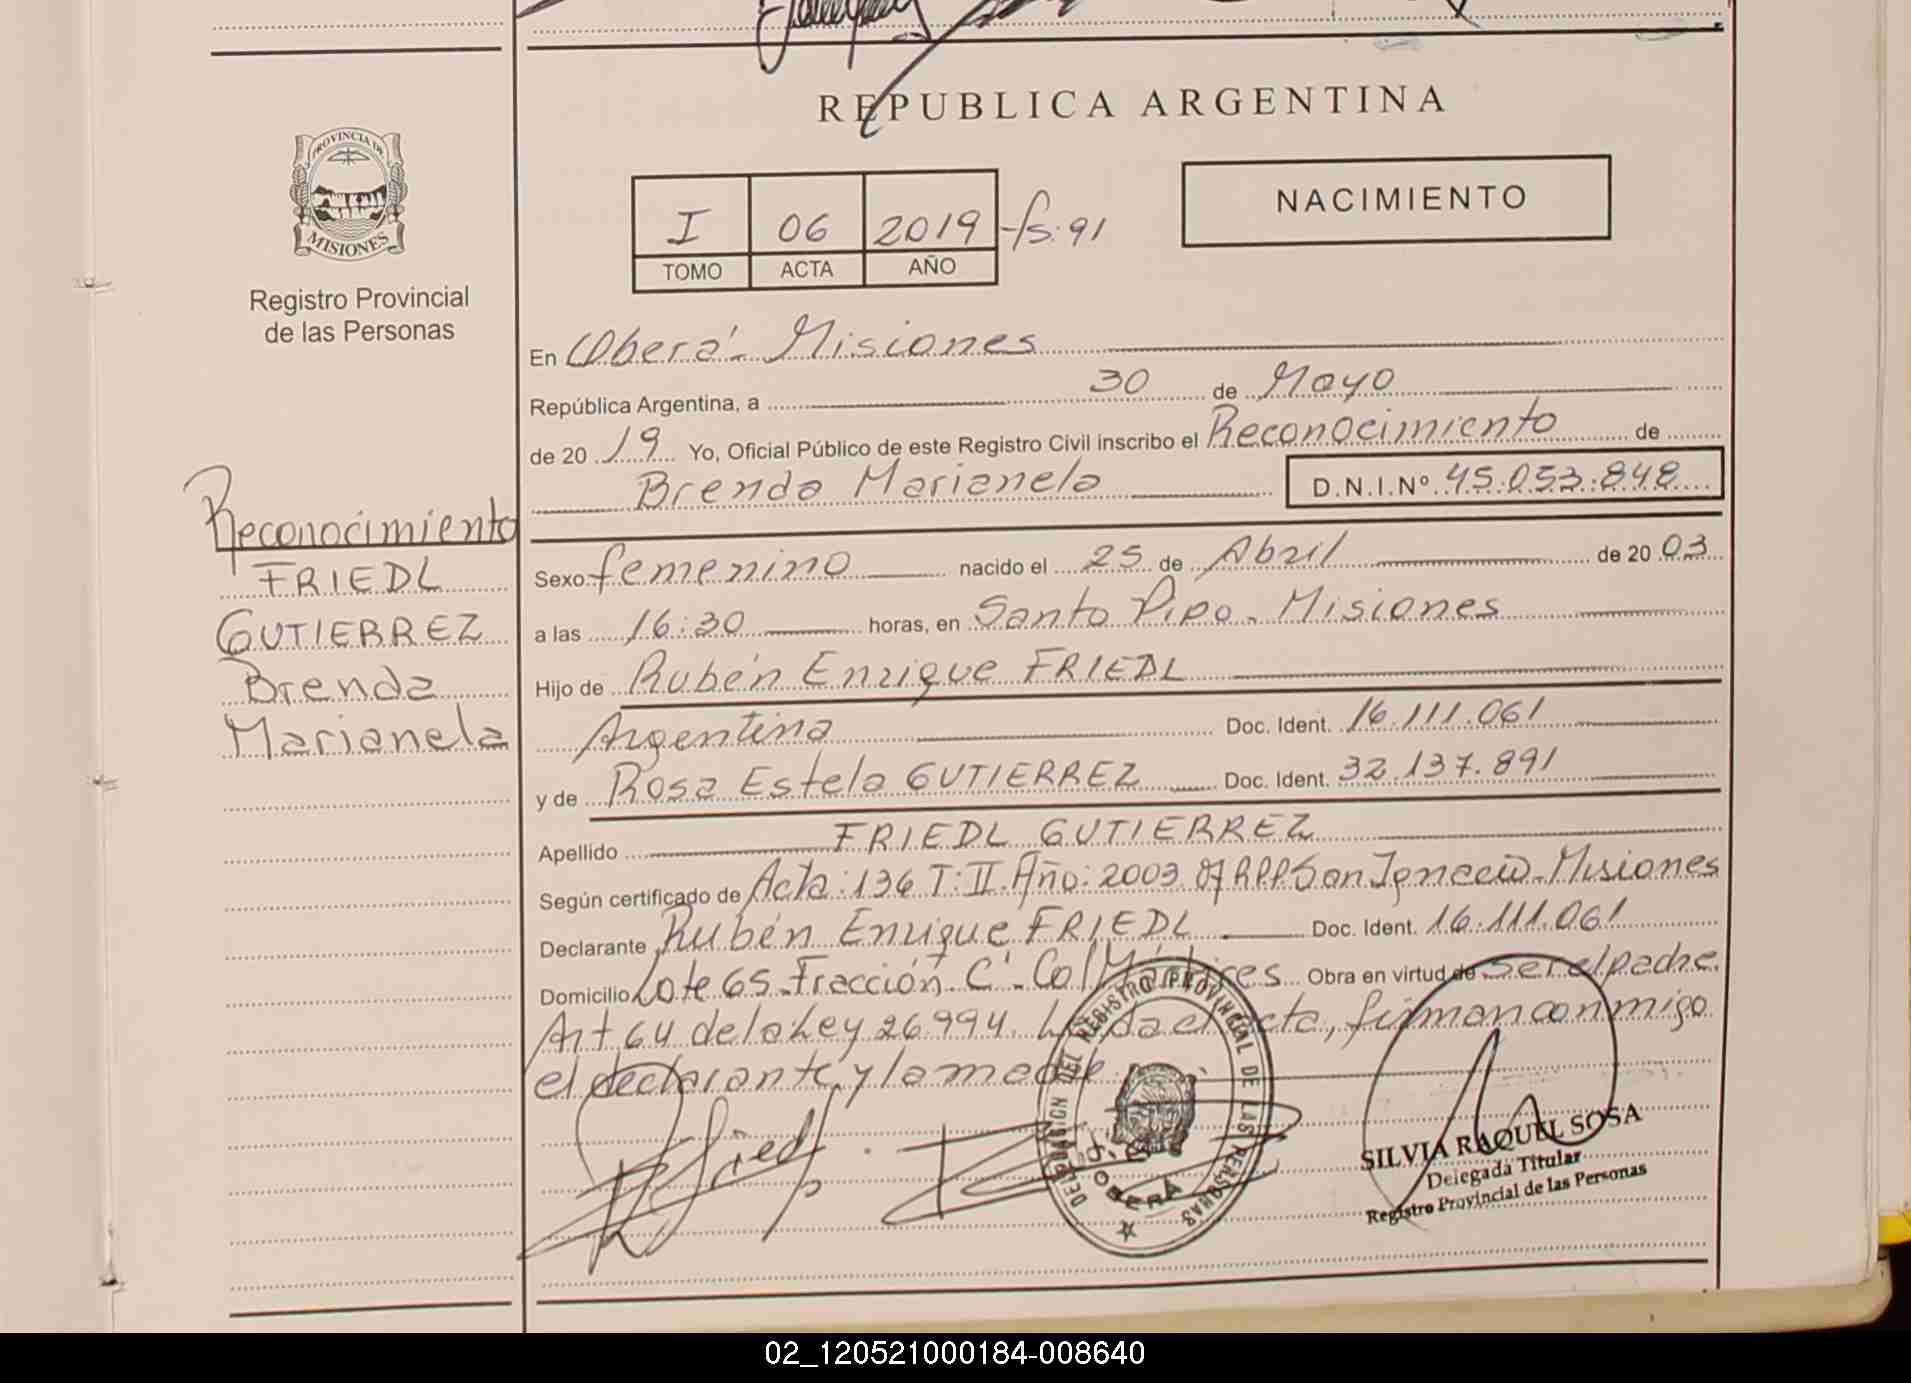 REPUBLICA ARGENTINA
PROVINCIA DE
MISIONES
Registro Provincial
de las Personas
NACIMIENTO
I 06 2019 fs. 91
TOMO ACTA AÑO
En Oberá - Misiones
República Argentina, a 30 de Mayo
de 20 19 Yo, Oficial Público de este Registro Civil inscribo el Reconocimiento de
Brenda Marianela D.N.I.Nº 45.053.848
Reconocimiento
FRIEDL
GUTIERREZ
Brenda
Marianela
Sexo femenino nacido el 25 de Abril de 20 03
a las 16:30 horas, en Santo Pipo - Misiones
Hijo de Rubén Enrique FRIEDL
Argentina Doc. Ident. 16.111.061
y de Rosa Estela GUTIERREZ Doc. Ident. 32.137.891
Apellido FRIEDL GUTIERREZ
Según certificado de Acta: 136 T: II Año: 2003 San Ignacio - Misiones
Declarante Rubén Enrique FRIEDL Doc. Ident. 16.111.061
Domicilio Lote 65 Fracción C' - Col Mártires Obra en virtud de ser el padre.
Art 64 de la Ley 26.994. Leída el acta, firman conmigo
el declarante y la madre.
Friedl
DELEGACION DEL REGISTRO PROVINCIAL DE LAS PERSONAS
OBERÁ
SILVIA RAQUEL SOSA
Delegada Titular
Registro Provincial de las Personas
02_120521000184-008640